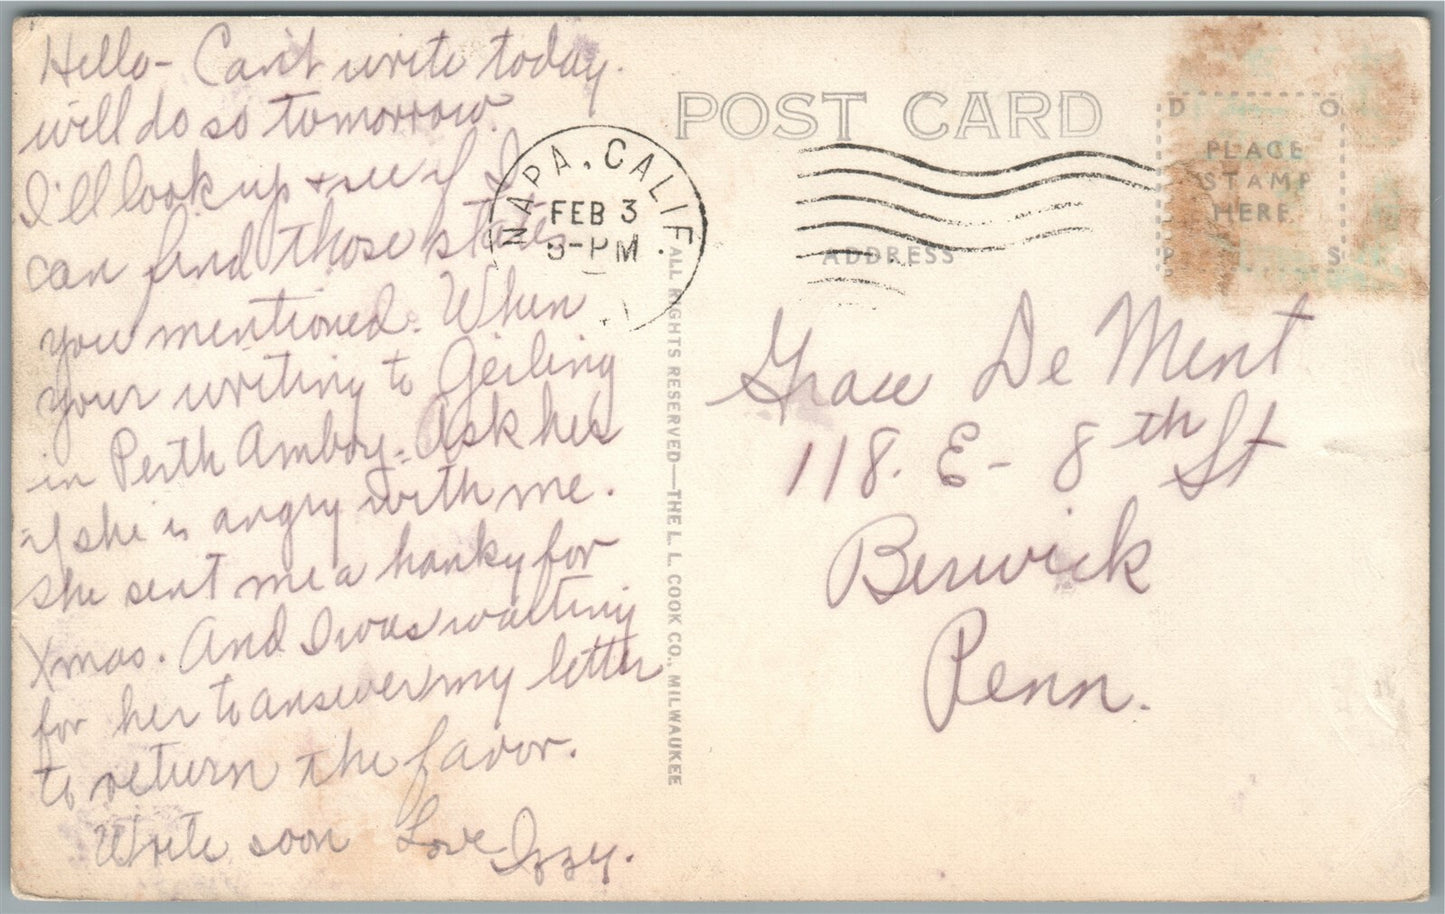 Hello - Can't write today.
will do so tomorrow.
I'll look up + see if I
can find those states
you mentioned. When
your writing to Geiling
in Perth Amboy - Ask her
if she is angry with me.
She sent me a hanky for
Xmas. And I was waiting
for her to answer my letter
to return the favor.
Write soon Love Izzy.
NAPA, CALIF.
FEB 3
PM
POST CARD
ADDRESS
PLACE
STAMP
HERE
D O P S
ALL RIGHTS RESERVED—THE L. L. COOK CO., MILWAUKEE
Grace De Ment
118. E - 8th St
Berwick
Penn.